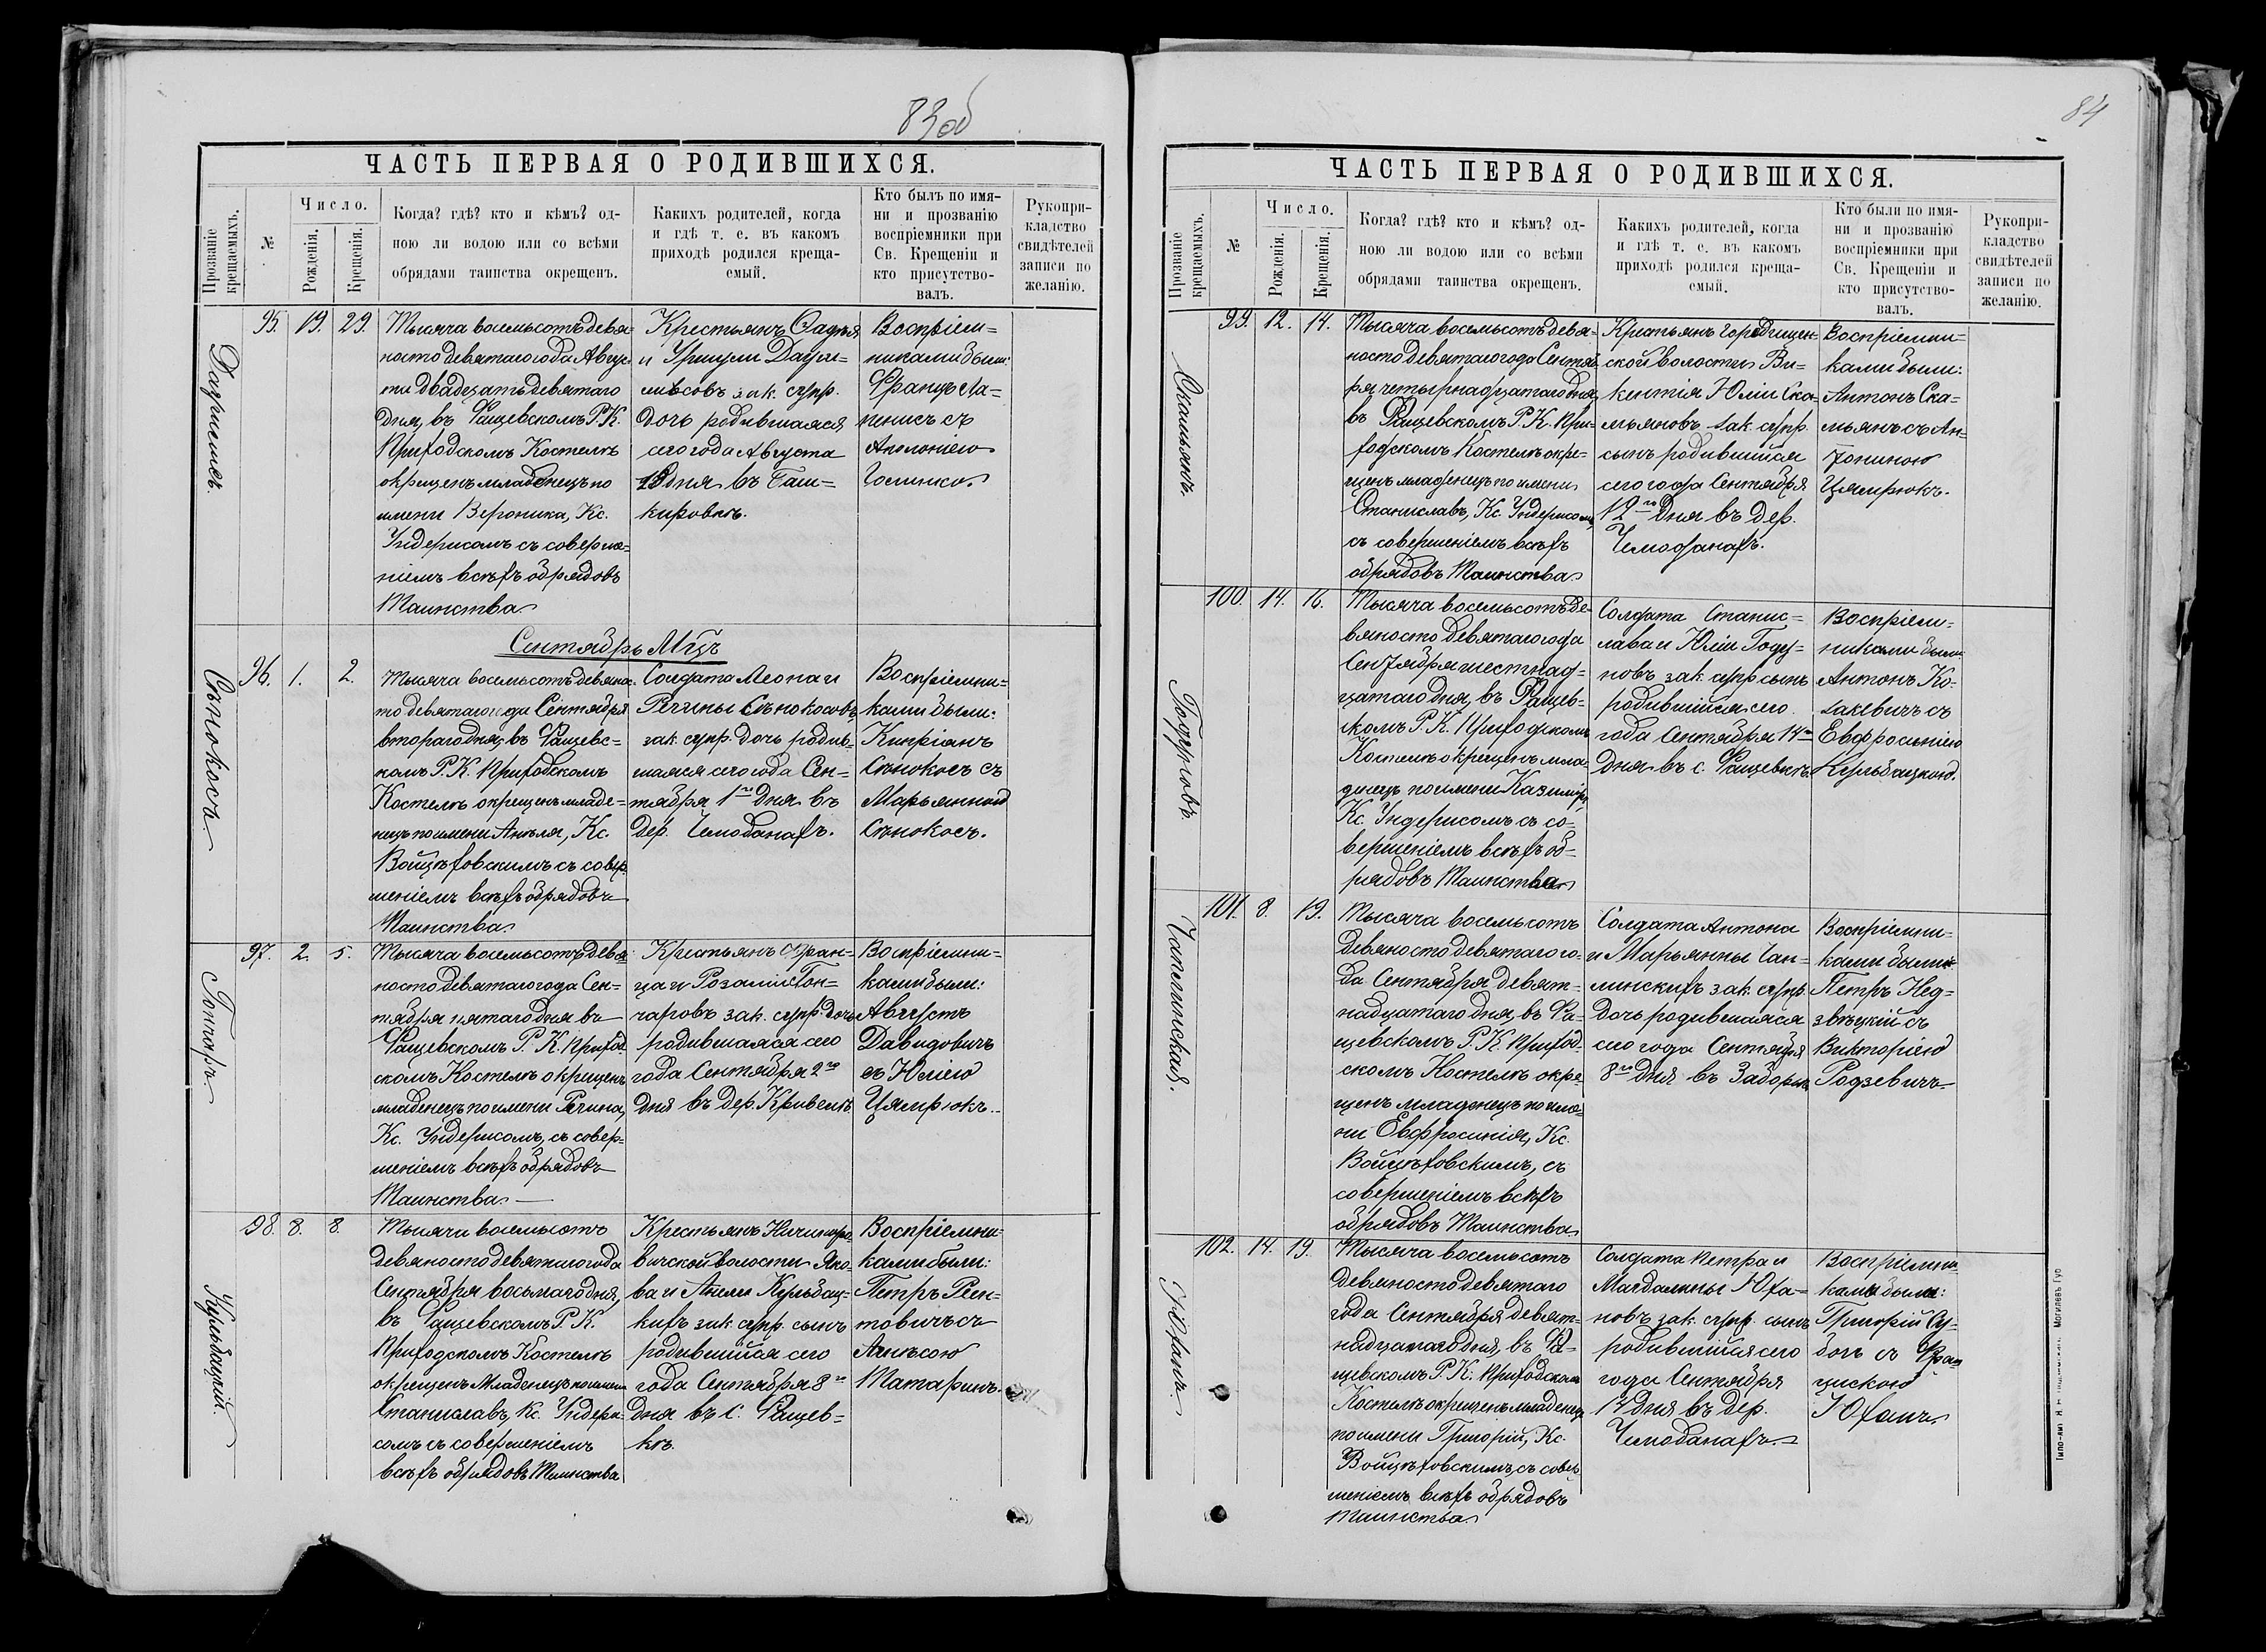 83об
ЧАСТЬ ПЕРВАЯ О РОДИВШИХСЯ.
Прозваніе крещаемыхъ.
№
Число.
Рожденія.
Крещенія.
Когда? гдѣ? кто и кѣмъ? од-
ною ли водою или со всѣми
обрядами таинства окрещенъ.
Какихъ родителей, когда
и гдѣ т. е. въ какомъ
приходѣ родился креща-
емый.
Кто былъ по имя-
ни и прозванію
воспріемники при
Св. Крещеніи и
кто присутство-
валъ.
Рукопри-
кладство
свидѣтелей
записи по
желанію.
95. 19. 29.
Тысяча восемьсотъ девя-
носто девятаго года Авгус-
та двадцать девятаго
дня, въ Фащевскомъ Р. К.
Приходскомъ Костелѣ
окрещенъ младенецъ по
имени Вероника, Кс.
Ундерисомъ съ соверше-
ніемъ всѣхъ обрядовъ
Таинства
Крестьянъ Фадѣя
и Уршули
зак. супр.
дочь родившаяся
сего года Августа
19 дня въ Баш-
кировкѣ.
Воспріем-
никами были:
Францъ Ла-
пенисъ съ
Аполоніею
Сентябрь Мцъ
Сѣнокосъ
96. 1. 2.
Тысяча восемьсотъ девянос-
то девятаго года Сентября
втораго дня, въ Фащевс-
комъ Р. К. Приходскомъ
Костелѣ окрещенъ младе-
нецъ по имени Анеля, Кс.
Войцѣховскимъ съ совер-
шеніемъ всѣхъ обрядовъ
Таинства
Солдата Леона и
Регины Сѣнокосовъ
зак. супр. дочь родив-
шаяся сего года Сен-
тября 1го дня въ
дер. Чемоданахъ.
Воспріемни-
ками были:
Кипріанъ
Сѣнокосъ съ
Марьянною
Сѣнокосъ.
Гончаръ
97. 2. 5.
Тысяча восемьсотъ девя-
носто девятаго года Сен-
тября пятаго дня въ
Фащевскомъ Р. К. Приход-
скомъ Костелѣ окрещенъ
младенецъ по имени Регина,
Кс. Ундерисомъ, съ совер-
шеніемъ всѣхъ обрядовъ
Таинства.
Крестьянъ Фран-
ца и Розаліи Гон-
чаровъ зак. супр. дочь
родившаяся сего
года Сентября 2го
дня въ дер. Кривелѣ
Воспріемни-
ками были:
Августъ
Давидовичъ
съ Юліею
Цямрюкъ.
Кульбацкій.
98. 8. 8.
Тысяча восемьсотъ
девяносто девятаго года
Сентября восьмаго дня,
въ Фащевскомъ Р. К.
Приходскомъ Костелѣ
окрещенъ Младенецъ по имени
Станиславъ, Кс. Ундери-
сомъ съ совершеніемъ
всѣхъ обрядовъ Таинства
Крестьянъ
вичской волости Яко-
ва и Анели Кульбац-
кихъ зак. супр. сынъ
родившійся сего
года Сентября 8го
дня въ с. Фащев-
кѣ.
Воспріемни-
ками были:
Петръ Рен-
товичъ съ
Агнѣсою
Татаринъ.
84
ЧАСТЬ ПЕРВАЯ О РОДИВШИХСЯ.
Прозваніе крещаемыхъ.
№
Число.
Рожденія.
Крещенія.
Когда? гдѣ? кто и кѣмъ? од-
ною ли водою или со всѣми
обрядами таинства окрещенъ.
Какихъ родителей, когда
и гдѣ т. е. въ какомъ
приходѣ родился креща-
емый.
Кто были по имя-
ни и прозванію
воспріемники при
Св. Крещеніи и
кто присутство-
валъ.
Рукопри-
кладство
свидѣтелей
записи по
желанію.
Скамьянъ.
99. 12. 14.
Тысяча восемьсотъ девя-
носто девятаго года Сентяб-
ря четырнадцатаго дня,
въ Фащевскомъ Р. К. При-
ходскомъ Костелѣ окре-
щенъ младенецъ по имени
Станиславъ, Кс. Ундерисомъ,
съ совершеніемъ всѣхъ
обрядовъ Таинства
Крестьянъ Городищен-
ской волости Ви-
кентія Юліи Ска-
мьяновъ зак. супр.
сынъ родившійся
сего года Сентября
12го дня въ дер.
Чемоданахъ.
Воспріемни-
ками были:
Антонъ Ска-
мьянъ съ Ан-
тониною
Цямрюкъ.
Годуновъ.
100. 14. 16.
Тысяча восемьсотъ де-
вяносто девятаго года
Сентября шестнад-
цатаго дня, въ Фащев-
скомъ Р. К. Приходскомъ
Костелѣ окрещенъ мла-
денецъ по имени Казиміръ,
Кс. Ундерисомъ съ со-
вершеніемъ всѣхъ об-
рядовъ Таинства
Солдата Станис-
лава и Юліи Году-
новъ зак. супр. сынъ
родившійся сего
года Сентября 14го
дня въ с. Фащевкѣ.
Воспріем-
никами были:
Антонъ Ко-
закевичъ съ
Евфросинією
Кульбацкою.
Чаплинская.
101. 8. 19.
Тысяча восемьсотъ
девяносто девятаго го-
да Сентября девят-
надцатаго дня, въ Фа-
щевскомъ Р. К. Приход-
скомъ Костелѣ окре-
щенъ младенецъ по име-
ни Евфросинія, Кс.
Войцѣховскимъ, съ
совершеніемъ всѣхъ
обрядовъ Таинства
Солдата Антона
и Марьянны Чап-
линскихъ зак. супр.
дочь родившаяся
сего года Сентября
8го дня въ Заборьѣ
Воспріемни-
ками были:
Петръ Нед-
звѣцкій съ
Викторіею
Родзевичъ
Юханъ.
102. 14. 19.
Тысяча восемьсотъ
девяносто девятаго
года Сентября девят-
надцатаго дня, въ Фа-
щевскомъ Р. К. Приходскомъ
Костелѣ окрещенъ младенецъ
по имени Григорій, Кс.
Войцѣховскимъ, съ совер-
шеніемъ всѣхъ обрядовъ
Таинства
Солдата Петра и
Магдалины Юха-
новъ зак. супр. сынъ
родившійся сего
года Сентября
дня въ дер.
Чемоданахъ.
Воспріемни-
ками были:
Григорій Су-
бочъ съ Фран-
цискою
Юханъ